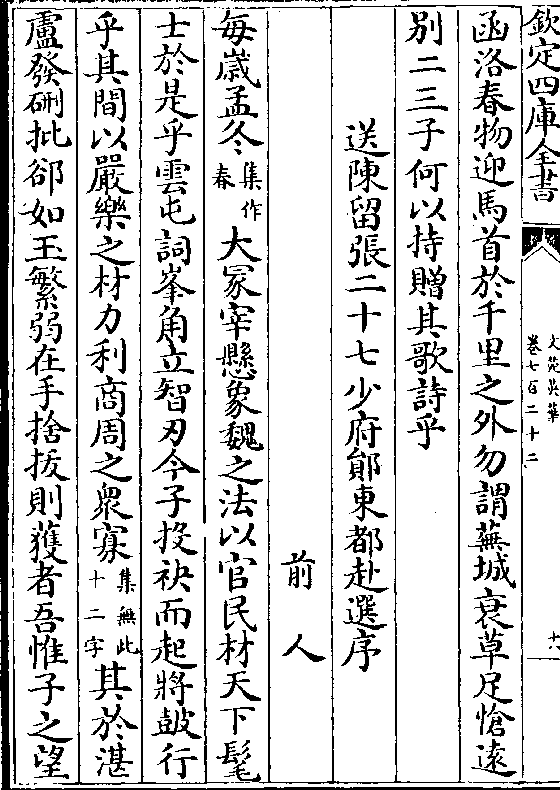 欽定四庫全書
文苑英華
卷七百二十二
函洛春物迎馬首於千里之外勿謂蕪城衰草足愴遠
别二三子何以持贈其歌詩乎
送陳留張二十七少府鄖東都赴選序
前人
每歲孟冬集作春大冢宰懸象魏之法以官民材天下髦
士於是乎雲屯詞峯角立智刃今子投袂而起將鼓行
乎其間以嚴樂之材力利商周之衆寡集無此十二字其於湛
盧發硎批郤如玉繁弱在手捨拔則獲者吾惟子之望